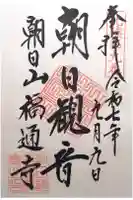 奉拝 令和七年
九月九日
朝日観音
朝日山福通寺